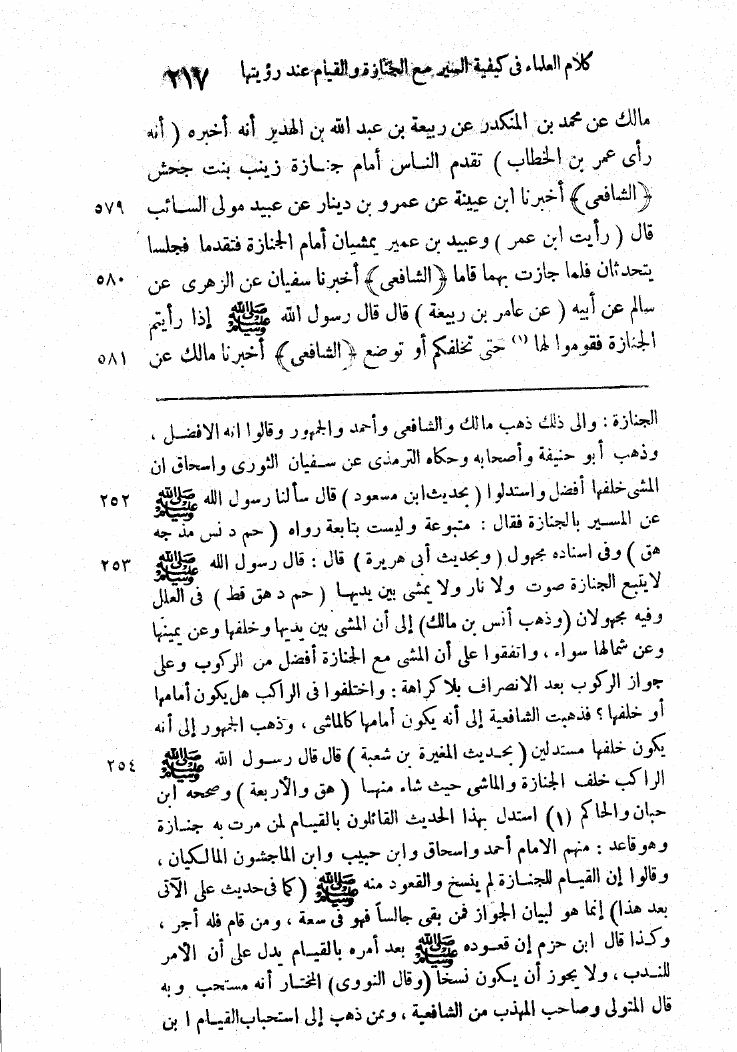 كلام العلماء فى كيفية السير مع الجنازة والقيام عند رؤيتها ٢١٧
مالك عن محمد بن المنكدر عن ربيعة بن عبد الله بن الهدير أنه أخبره ( أنه
رأى عمر بن الخطاب ) تقدم الناس أمام جنازة زينب بنت جحش
﴿الشافعى﴾ أخبرنا ابن عيينة عن عمرو بن دينار عن عبيد مولى السائب ٥٧٩
قال ( رأيت ابن عمر ) وعبيد بن عمير يمشيان أمام الجنازة فتقدما فجلسا
يتحدثان فلما جازت بهما قاما ﴿الشافعى﴾ أخبرنا سفيان عن الزهرى عن ٥٨٠
سالم عن أبيه ( عن عامر بن ربيعة ) قال قال رسول الله ﷺ إذا رأيتم
الجنازة فقوموا لها (١) حتى تخلفكم أو توضع ﴿الشافعى﴾ أخبرنا مالك عن ٥٨١
الجنازة : والى ذلك ذهب مالك والشافعى وأحمد والجمهور وقالوا انه الافضل ،
وذهب أبو حنيفة وأصحابه وحكاه الترمذى عن سفيان الثورى واسحاق ان
المشى خلفها أفضل واستدلوا ( بحديث ابن مسعود ) قال سألنا رسول الله ﷺ ٢٥٢
عن المسير بالجنازة فقال : متبوعة وليست بتابعة رواه ( حم د نس مذ جه
هق ) وفى اسناده مجهول ( وبحديث أبى هريرة ) قال : قال رسول الله ﷺ ٢٥٣
لايتبع الجنازة صوت ولا نار ولا يمشى بين يديها ( حم د هق قط ) فى العلل
وفيه مجهولان (وذهب أنس بن مالك) إلى أن المشى بين يديها وخلفها وعن يمينها
وعن شمالها سواء ، واتفقوا على أن المشى مع الجنازة أفضل من الركوب وعلى
جواز الركوب بعد الانصراف بلا كراهة : واختلفوا فى الراكب هل يكون أمامها
أو خلفها ؟ فذهبت الشافعية إلى أنه يكون أمامها كالماشى ، وذهب الجمهور إلى أنه
يكون خلفها مستدلين ( بحديث المغيرة بن شعبة ) قال قال رسول الله ﷺ ٢٥٤
الراكب خلف الجنازة والماشى حيث شاء منها ( هق والأربعة ) وصححه ابن
حبان والحاكم (١) استدل بهذا الحديث القائلون بالقيام لمن مرت به جنازة
وهو قاعد : منهم الامام أحمد واسحاق وابن حبيب وابن الماجشون المالكيان ،
وقالوا إن القيام للجنازة لم ينسخ والقعود منه ﷺ (كما فى حديث على الآتى
بعد هذا) إنما هو لبيان الجواز فمن بقى جالساً فهو فى سعة ، ومن قام فله أجر ،
وكذا قال ابن حزم إن قعوده ﷺ بعد أمره بالقيام يدل على أن الأمر
للندب ، ولا يجوز أن يكون نسخا (وقال النووى) المختار أنه مستحب وبه
قال المتولى وصاحب المهذب من الشافعية ، وممن ذهب إلى استحباب القيام ابن